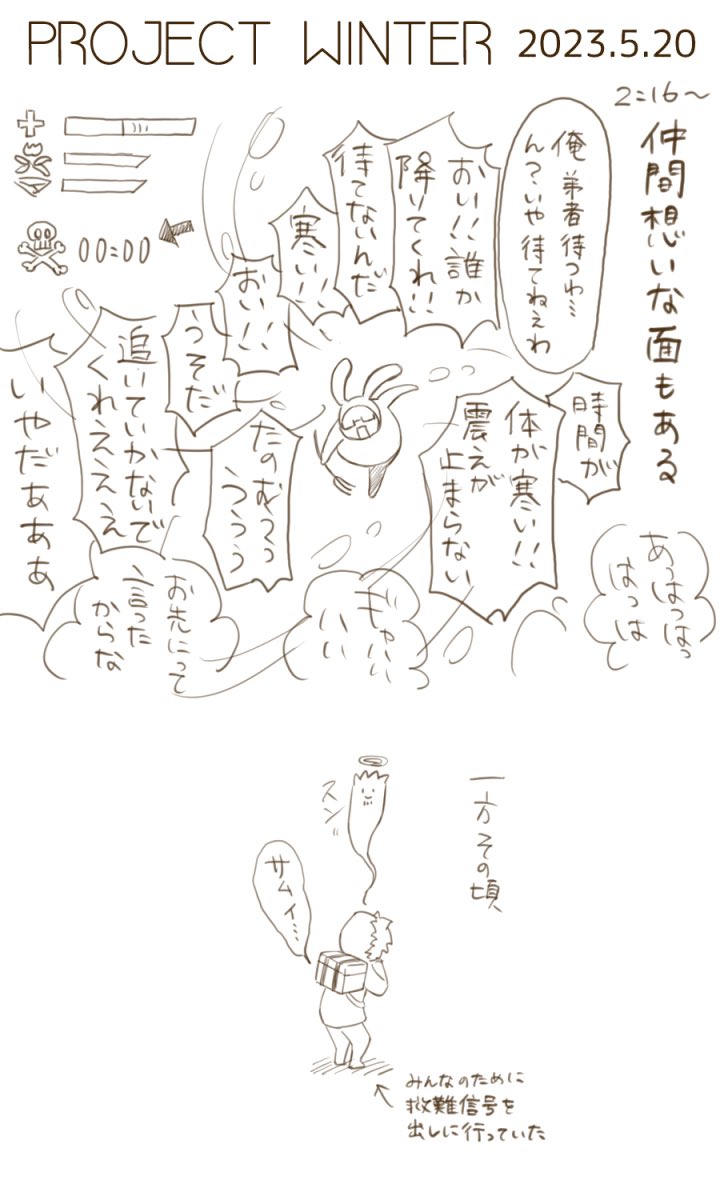 PROJECT WINTER 2023.5.20
2:16〜
仲間想いな面もある
俺 弟者待つわ…
ん?いや待てねぇわ
おい!!誰か
降りてくれ!!
待てないんだ
寒い!!
おい!!
うそだ
追いていかないで
くれえええ
いやだぁぁぁ
00:00
時間が
体が寒い!!
震えが
止まらない
たのむっっ
ううう
あっはっはっ
はっはっは
ギャハハ
ハハ
お先にって
言った
からな
一方その頃、
スン…
サムイ…
みんなのために
救難信号を
出しに行っていた